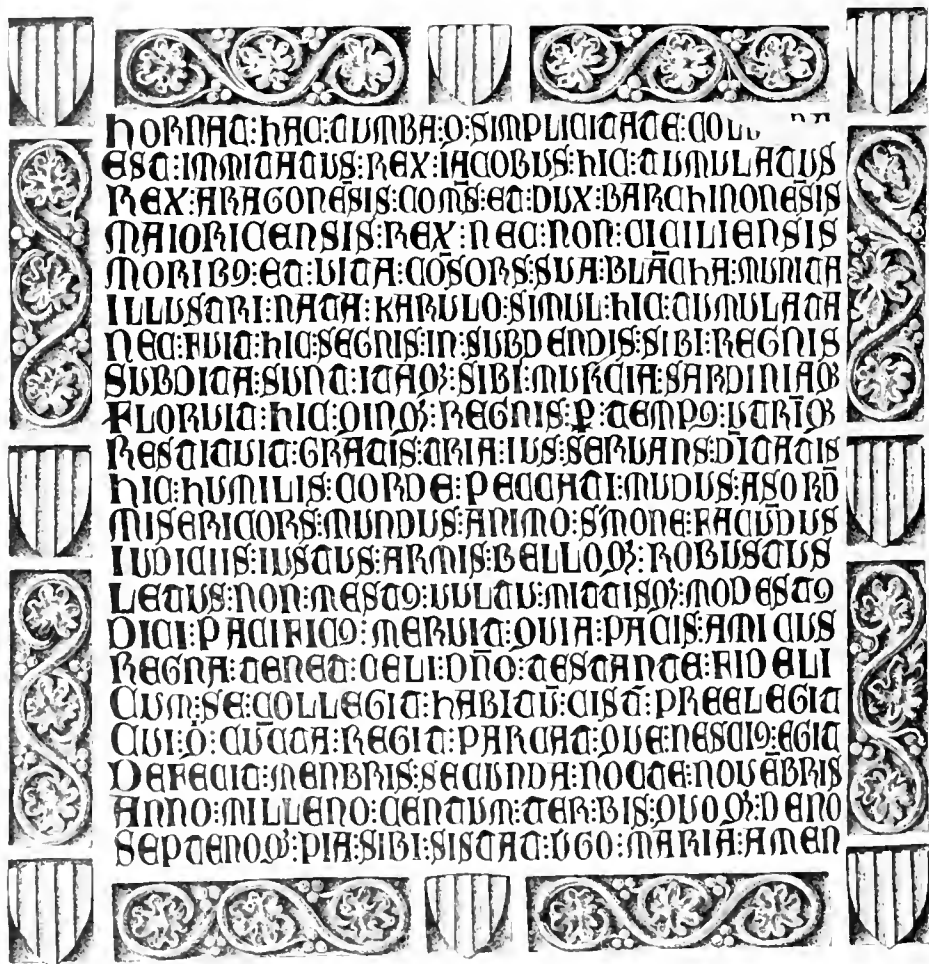 hORNAT:hAC:TUMBA:Q:SIMPLICITATE:
EST:IMMITATUS:REX:IACOBUS:hIC:TUMULATUS
REX:ARAGONE̅SIS:COM̅S:ET:DUX:BARChINONE̅SIS
MAIORICENSIS:REX:NEC:NON:CICILIENSIS
MORIBꝰ:ET:VITA:CO̅SORS:SUA:BLA̅ChA:MUNITA
ILLUSTRI:NATA:KARULO:SIMUL:hIC:TUMULATA
NEC:FUIT:hIC:SEGNIS:IN:SUBDENDIS:SIBI:REGNIS
SUBDITA:SUNT:ITAQꝫ:SIBI:MURCIA:SARDINIAQꝫ
FLORUIT:hIC:QINQꝫ:REGNIS:P̱:TEMPꝰ:UTRI̅Qꝫ
RESTITUIT:GRATIS:TRIA:IUS:SERVANS:DI̅TATIS
hIC:hUMILIS:CORDE:PECCATI:MUDUS:ASORD̅
MISERICORS:MUNDUS:ANIMO:S̓MONE:FACU̅DUS
IUDICIIS:IUSTUS:ARMIS:BELLOQꝫ:ROBUSTUS
LETUS:NON:MESTꝰ:VULTU:MITTISQꝫ:MODESTꝰ
DICI:PACIFICꝰ:MERUIT:QUIA:PACIS:AMICUS
REGNA:TENET:CELI:DN̅O:TESTANTE:FIDELI
CUM:SE:COLLEGIT:hABITU̅:CIST̅:PREELEGIT
CUI:Q̅:CU̅CTA:REGIT:PARCAT:QUE:NESCIꝰ:EGIT
DEFECIT:MENBRIS:SECUNDA:NOCTE:NOVE̅BRIS
ANNO:MILLENO:CENTUM:TER:BIS:QUOQꝫ:DENO
SEPTENOQꝫ:PIA:SIBI:SISTAT:V̓GO:MARIA:AMEN